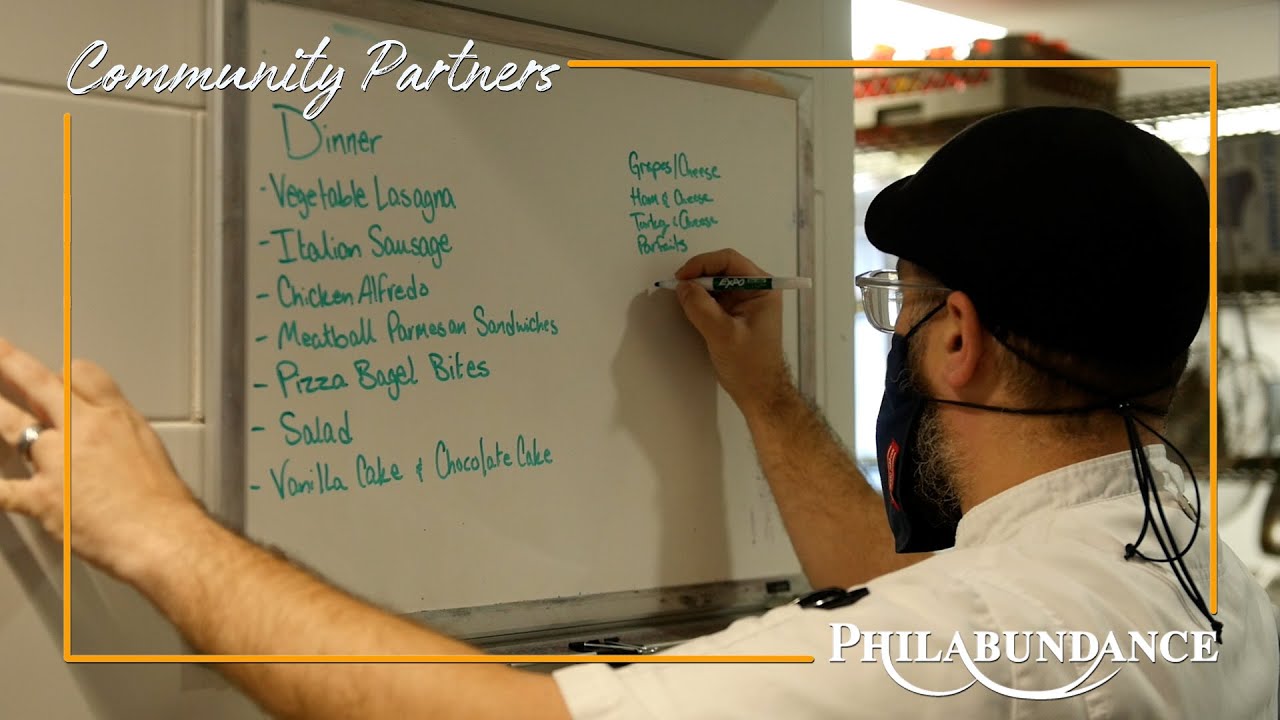 Community Partners
Dinner
- Vegetable Lasagna
- Italian Sausage
- Chicken Alfredo
- Meatball Parmesan Sandwiches
- Pizza Bagel Bites
- Salad
- Vanilla Cake & Chocolate Cake
Grapes/Cheese
Ham & Cheese
Turkey & Cheese
Parfaits
EXPO
PHILABUNDANCE